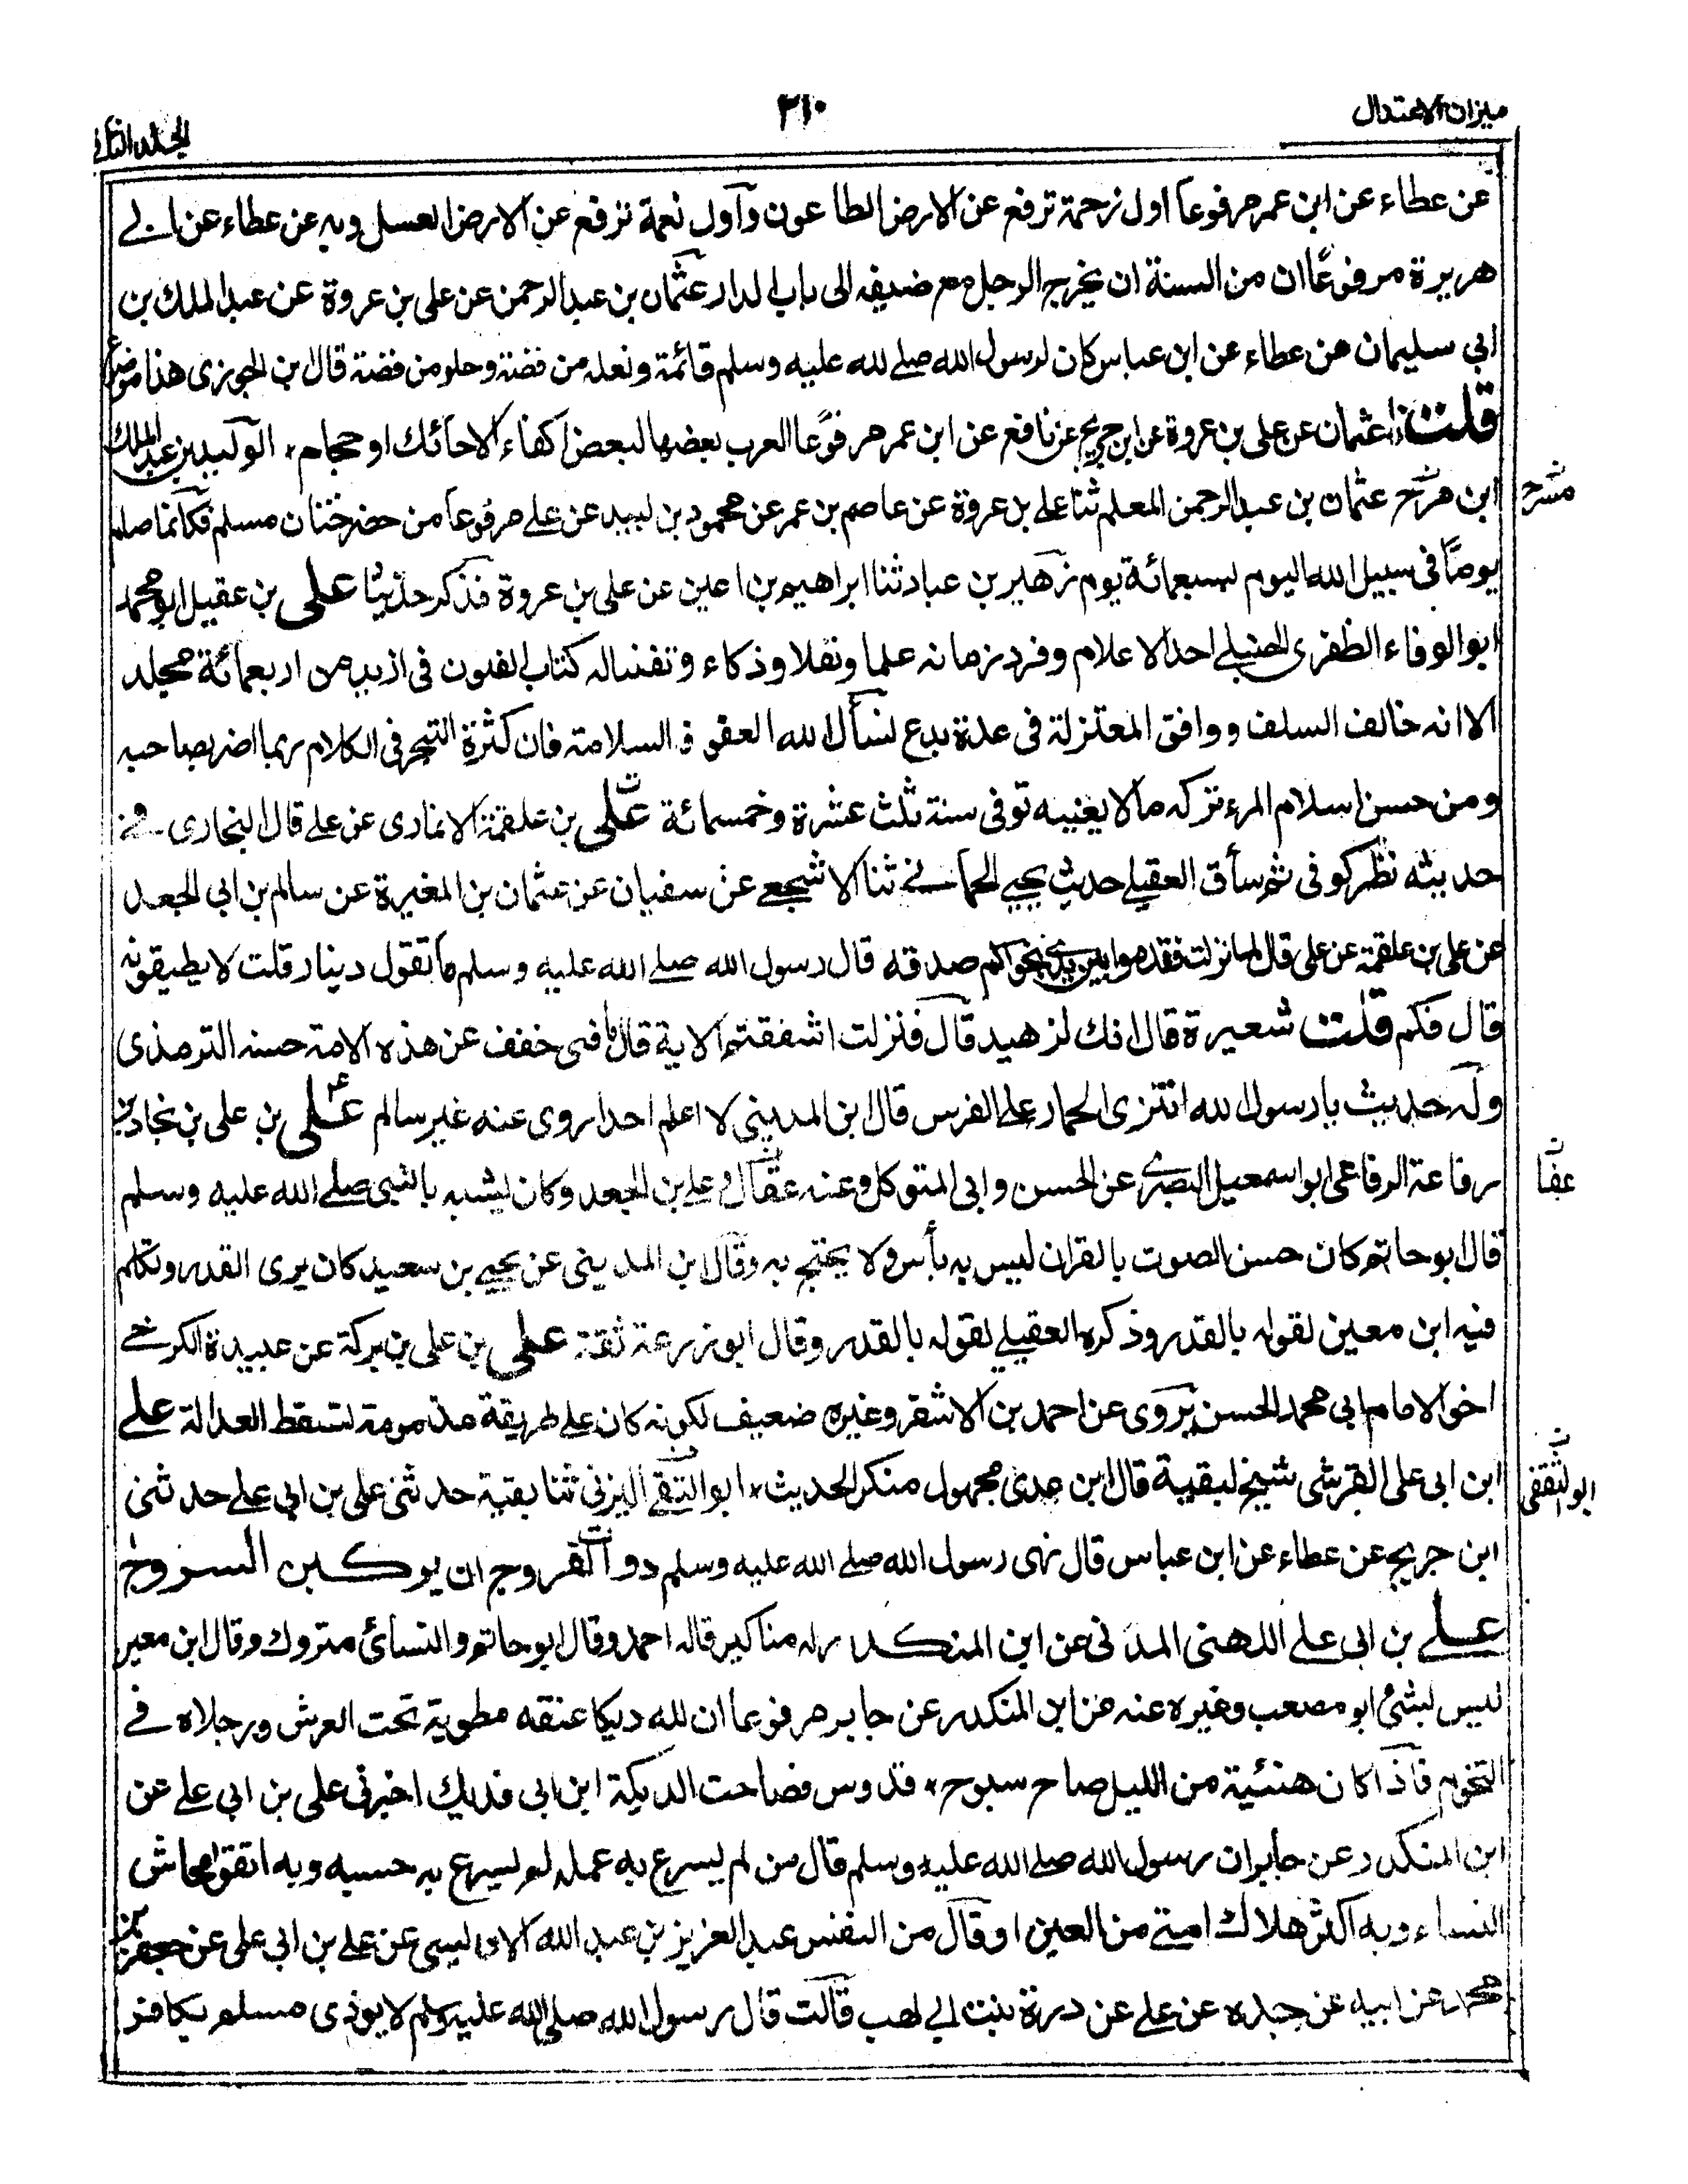 ميزان الاعتدال
٢١٠
الجلد الثاني
عن عطاء عن ابن عمر مرفوعا اول رحمة ترفع عن الارض الطاعون واول نعمة ترفع عن الارض العسل وبه عن عطاء عن ابى
هريرة مرفوعًا ان من السنة ان يخرج الرجل مع ضيفه الى باب الدار عثمان بن عبد الرحمن عن على بن عروة عن عبد الملك بن
ابى سليمان عن عطاء عن ابن عباس كان لرسول الله صلے الله عليه وسلم قائمة ونعله من فضة وحلو من فضة قال بن الجوزى هذا موضوع
قلت عثمان عن على بن عروة عن ابن جريج عن نافع عن ابن عمر مرفوعًا العرب بعضها لبعض اكفاء الا حائك او حجام، الوليد بن عبد الملك
ابن مسرح عثمان بن عبد الرحمن المعلم ثنا على بن عروة عن عاصم بن عمر عن محمود بن لبيد عن علے مرفوعا من حضر ختان مسلم فكانما صام
مسرح
يومًا فى سبيل الله اليوم بسبعمائة يوم زهير بن عباد ثنا ابراهيم بن اعين عن على بن عروة فذكر حديثا على بن عقيل ابو محمد
ابو الوفاء الظفرى الحنبلے احد الاعلام وفرد زمانه علما ونقلا وذكاء وتفننا له كتاب الفنون فى ازيد من اربعمائة مجلد
الا انه خالف السلف ووافق المعتزلة فى عدة بدع نسأل الله العفو و السلامة فان كثرة التبحر فى الكلام ربما اضر بصاحبه
ومن حسن اسلام المرء تركه ما لا يعنيه توفى سنة ثلث عشرة وخمسمائة على بن علقمة الانمارى عن علے قال البخارى فے
حديثه نظر كوفى ثم ساق العقيلے حديث يحيے الحمانے ثنا الاشجعے عن سفيان عن عثمان بن المغيرة عن سالم بن ابى الجعد
عن على بن علقمة عن على قال لما نزلت فقدموا بين يدے نجواكم صدقه قال رسول الله صلے الله عليه وسلم ما تقول دينار قلت لا يطيقونه
قال فكم قلت شعيرة قال انك لزهيد قال فنزلت اشفقتم الاية قال فبى خفف عن هذه الامة حسنه الترمذى
وله حديث يا رسول الله انتزى الحمار على الفرس قال ابن المدينى لا اعلم احدا روى عنه غير سالم على بن على بن نجاد بن
رفاعة الرفاعى ابو اسمعيل البصرے عن الحسن وابى المتوكل وعنه عفان و على بن الجعد وكان يشبه بالنبى صلے الله عليه وسلم
عفا
قال ابو حاتم كان حسن الصوت بالقران ليس به بأس ولا يحتج به وقال ابن المدينى عن يحيے بن سعيد كان يرى القدر وتكلم
فيه ابن معين لقوله بالقدر وذكره العقيلے لقوله بالقدر وقال ابو زرعة ثقة على بن على بن بركة عن عبيدة الكرخے
اخو الامام ابى محمد الحسن يروى عن احمد بن الاشقر وغيره ضعيف لكونه كان على طريقة مذمومة لتسقط العدالة علے
ابن ابى على القرشى شيخ لبقية قال ابن عدى مجهول منكر الحديث، ابو التقے اليزنى ثنا بقية حدثنى على بن ابى علے حدثنى
ابو التقى
ابن جريج عن عطاء عن ابن عباس قال نهى رسول الله صلے الله عليه وسلم ذوات الفروج ان يركبن السروج
علے بن ابى علے اللهبى المدنى عن ابن المنكدر له مناكير قاله احمد وقال ابو حاتم والنسائى متروك وقال ابن معين
ليس بشئ ابو مصعب وغيره عنه عن ابن المنكدر عن جابر مرفوعا ان لله ديكا عنقه مطوية تحت العرش ورجلاه فے
التخوم فاذا كان هنئية من الليل صاح سبوح، قدوس فصاحت الديكة ابن ابى فديك اخبرنى على بن ابى علے عن
ابن المنكدر عن جابر ان رسول الله صلے الله عليه وسلم قال من لم يسرع به عمله لم يسرع به حسبه وبه اتقوا محاش
النساء وبه اكثر هلاك امتے من العين او قال من النفس عبد العزيز بن عبد الله الاويسى عن على بن ابى على عن جعفر بن
محمد عن ابيه عن جده عن علے عن درة بنت ابى لهب قالت قال رسول الله صلى الله عليه وسلم لا يوذى مسلم بكافر